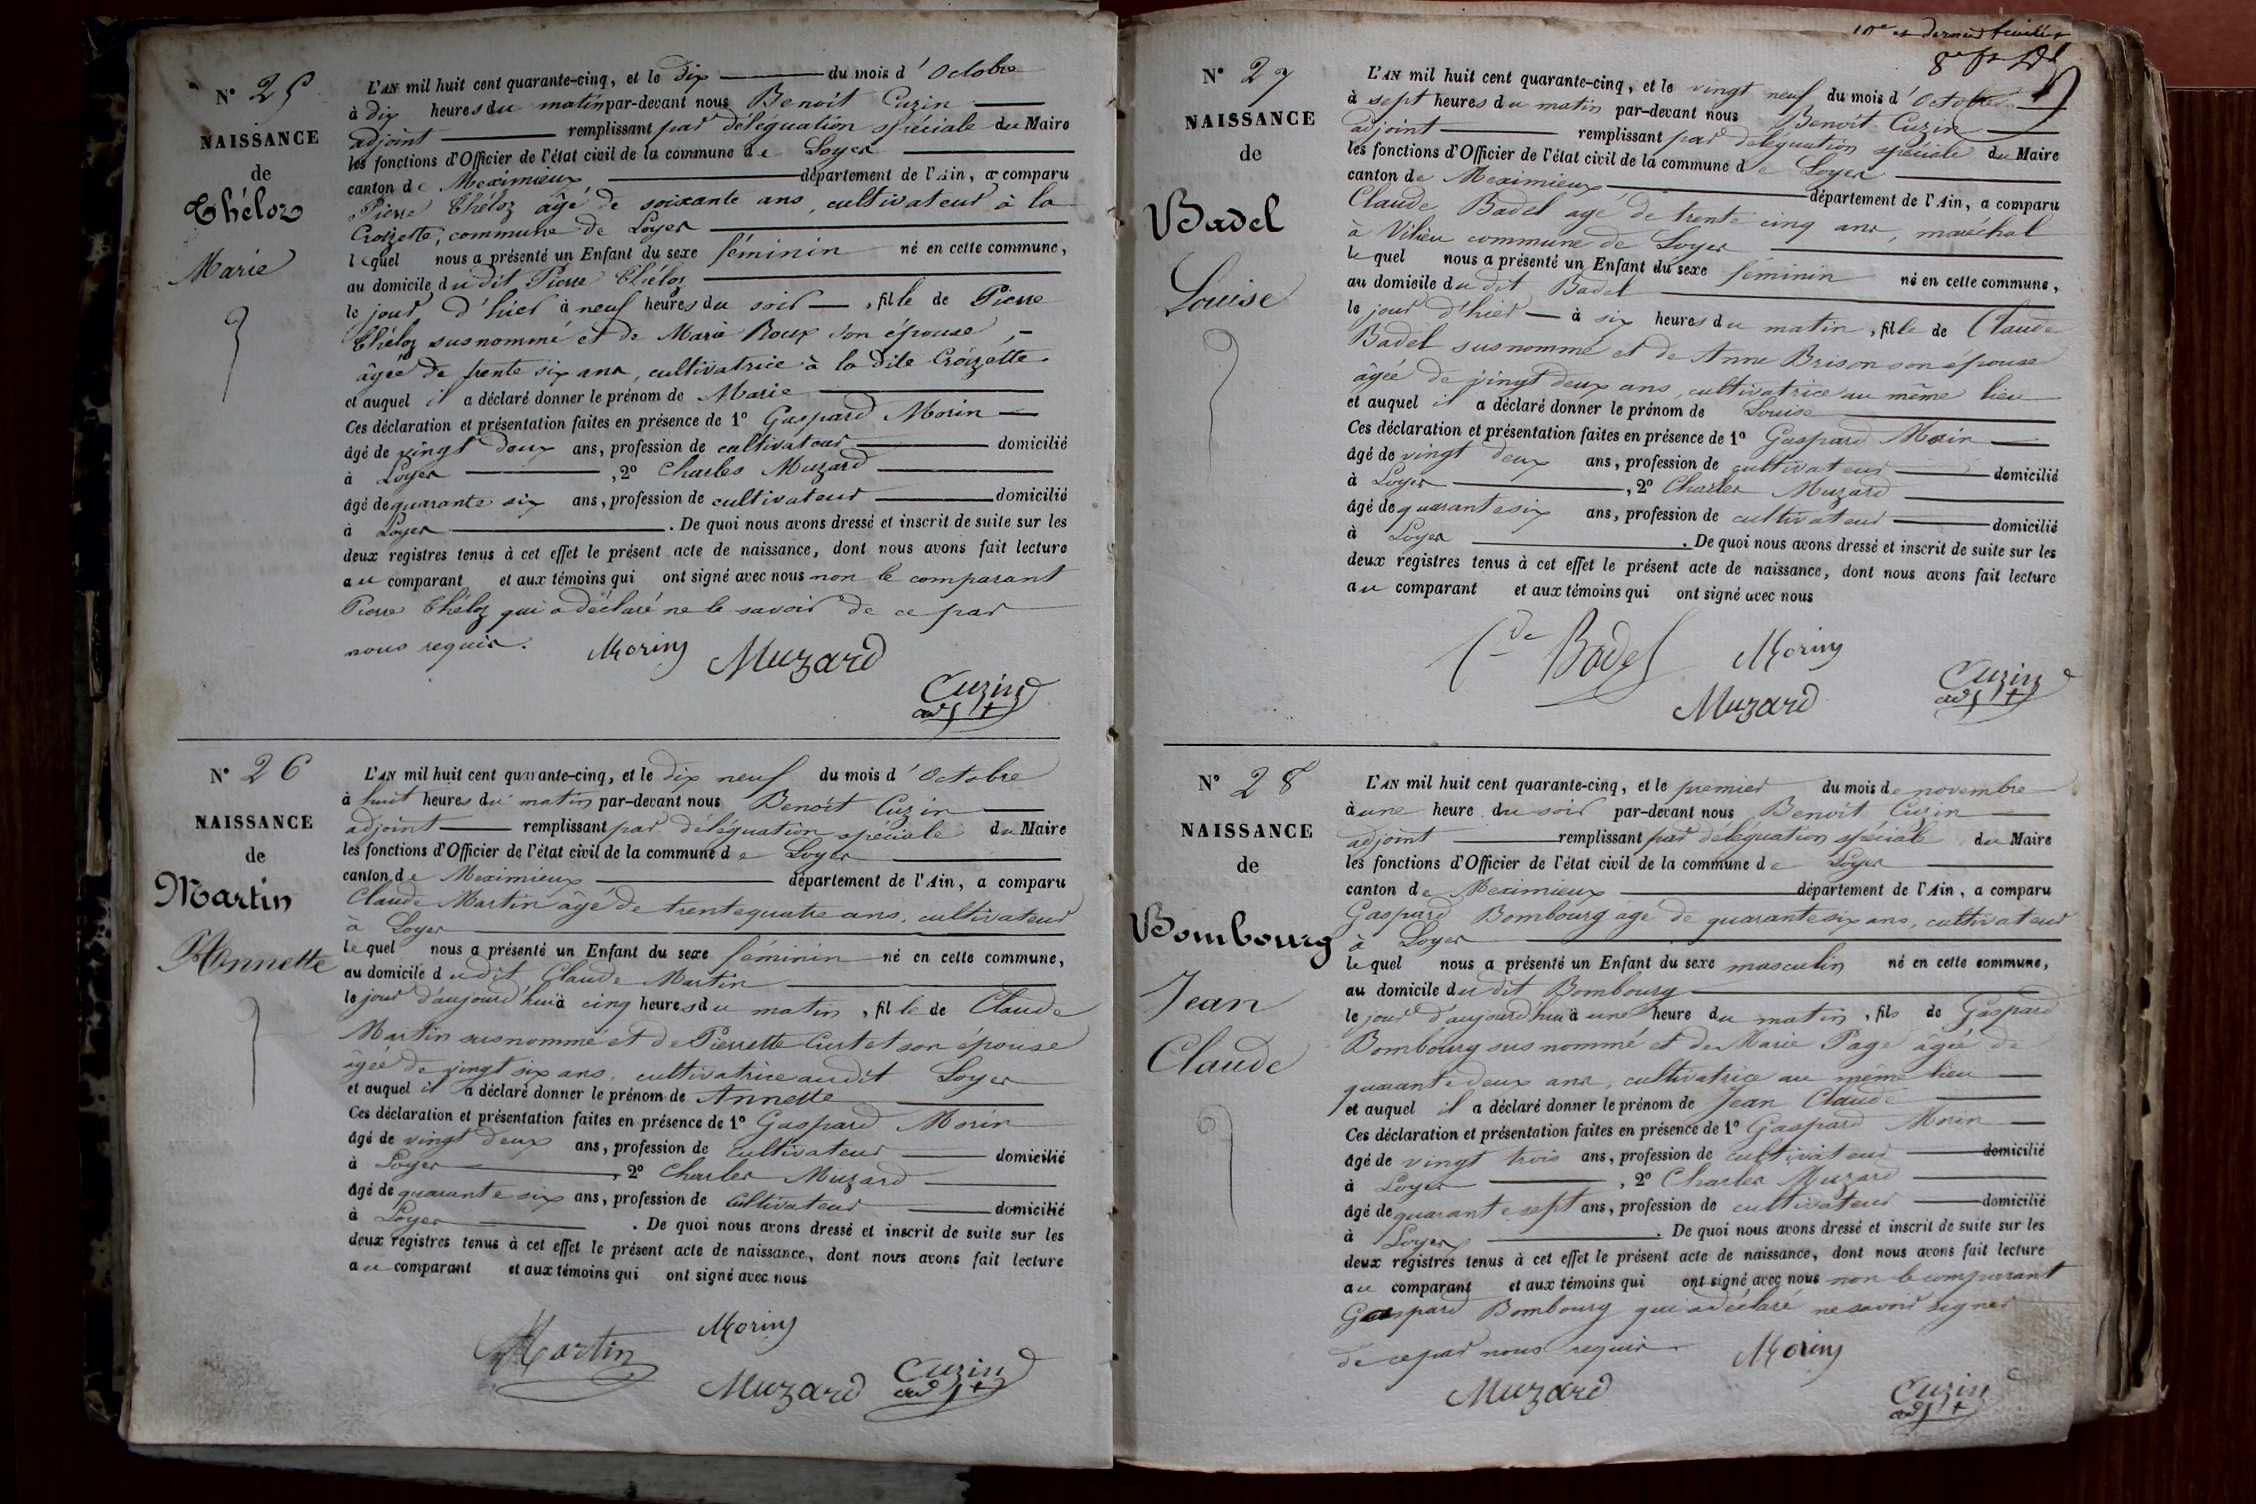 N° 25
NAISSANCE
de
Théloz
Marie
L'AN mil huit cent quarante-cinq, et le dix du mois d'Octobre
à dix heures du matin par-devant nous Benoit Cuzin
adjoint remplissant par déléguation spéciale du Maire
les fonctions d'Officier de l'état civil de la commune de Loyes
canton de Meximieux département de l'Ain, a comparu
Pierre Théloz âgé de soixante ans, cultivateur à la
Croizette, commune de Loyes
lequel nous a présenté un Enfant du sexe féminin né en cette commune,
au domicile du dit Pierre Théloz
le jour d'hier à neuf heures du soir, fille de Pierre
Théloz susnommé et de Marie Roux son épouse,
âgée de trente six ans, cultivatrice à la dite Croizette
et auquel il a déclaré donner le prénom de Marie
Ces déclaration et présentation faites en présence de 1° Gaspard Morin
âgé de vingt deux ans, profession de cultivateur domicilié
à Loyes, 2° Charles Muzard
âgé de quarante six ans, profession de cultivateur domicilié
à Loyes. De quoi nous avons dressé et inscrit de suite sur les
deux registres tenus à cet effet le présent acte de naissance, dont nous avons fait lecture
au comparant et aux témoins qui ont signé avec nous non le comparant
Pierre Théloz qui a déclaré ne le savoir de ce par
nous requis.
Morin Muzard
Cuzin
adjt
N° 26
NAISSANCE
de
Martin
Annette
L'AN mil huit cent quarante-cinq, et le dix neuf du mois d'Octobre
à huit heures du matin par-devant nous Benoit Cuzin
adjoint remplissant par déléguation spéciale du Maire
les fonctions d'Officier de l'état civil de la commune de Loyes
canton de Meximieux département de l'Ain, a comparu
Claude Martin âgé de trente quatre ans, cultivateur
à Loyes
lequel nous a présenté un Enfant du sexe féminin né en cette commune,
au domicile dudit Claude Martin
le jour d'aujourd'hui à cinq heures du matin, fille de Claude
Martin susnommé et de Pierrette Curtet son épouse
âgée de vingt six ans, cultivatrice audit Loyes
et auquel il a déclaré donner le prénom de Annette
Ces déclaration et présentation faites en présence de 1° Gaspard Morin
âgé de vingt deux ans, profession de cultivateur domicilié
à Loyes, 2° Charles Muzard
âgé de quarante six ans, profession de cultivateur domicilié
à Loyes. De quoi nous avons dressé et inscrit de suite sur les
deux registres tenus à cet effet le présent acte de naissance, dont nous avons fait lecture
au comparant et aux témoins qui ont signé avec nous
Martin Morin
Muzard Cuzin
adjt
N° 27
NAISSANCE
de
Badel
Louise
L'AN mil huit cent quarante-cinq, et le vingt neuf du mois d'Octobre
à sept heures du matin par-devant nous Benoit Cuzin
adjoint remplissant par déléguation spéciale du Maire
les fonctions d'Officier de l'état civil de la commune de Loyes
canton de Meximieux département de l'Ain, a comparu
Claude Badel agé de trente cinq ans, maréchal
à Vilieu commune de Loyes
lequel nous a présenté un Enfant du sexe féminin né en cette commune,
au domicile du dit Badel
le jour d'hier à six heures du matin, fille de Claude
Badel susnommé et de Anne Brison son épouse
âgée de vingt deux ans, cultivatrice au même lieu
et auquel il a déclaré donner le prénom de Louise
Ces déclaration et présentation faites en présence de 1° Gaspard Morin
âgé de vingt deux ans, profession de cultivateur domicilié
à Loyes, 2° Charles Muzard
âgé de quarante six ans, profession de cultivateur domicilié
à Loyes. De quoi nous avons dressé et inscrit de suite sur les
deux registres tenus à cet effet le présent acte de naissance, dont nous avons fait lecture
au comparant et aux témoins qui ont signé avec nous
Cde Badel Morin
Muzard Cuzin
adjt
N° 28
NAISSANCE
de
Bombourg
Jean
Claude
L'AN mil huit cent quarante-cinq, et le premier du mois de novembre
à une heure du soir par-devant nous Benoit Cuzin
adjoint remplissant par déléguation spéciale du Maire
les fonctions d'Officier de l'état civil de la commune de Loyes
canton de Meximieux département de l'Ain, a comparu
Gaspard Bombourg âgé de quarante six ans, cultivateur
à Loyes
lequel nous a présenté un Enfant du sexe masculin né en cette commune,
au domicile du dit Bombourg
le jour d'aujourd'hui à une heure du matin, fils de Gaspard
Bombourg susnommé et de Marie Page agée de
quarante deux ans, cultivatrice au même lieu
et auquel il a déclaré donner le prénom de Jean Claude
Ces déclaration et présentation faites en présence de 1° Gaspard Morin
âgé de vingt trois ans, profession de cultivateur domicilié
à Loyes, 2° Charles Muzard
âgé de quarante sept ans, profession de cultivateur domicilié
à Loyes. De quoi nous avons dressé et inscrit de suite sur les
deux registres tenus à cet effet le présent acte de naissance, dont nous avons fait lecture
au comparant et aux témoins qui ont signé avec nous non le comparant
Gaspard Bombourg qui a déclaré ne savoir signer
de ce par nous requis.
Morin
Muzard Cuzin
adjt